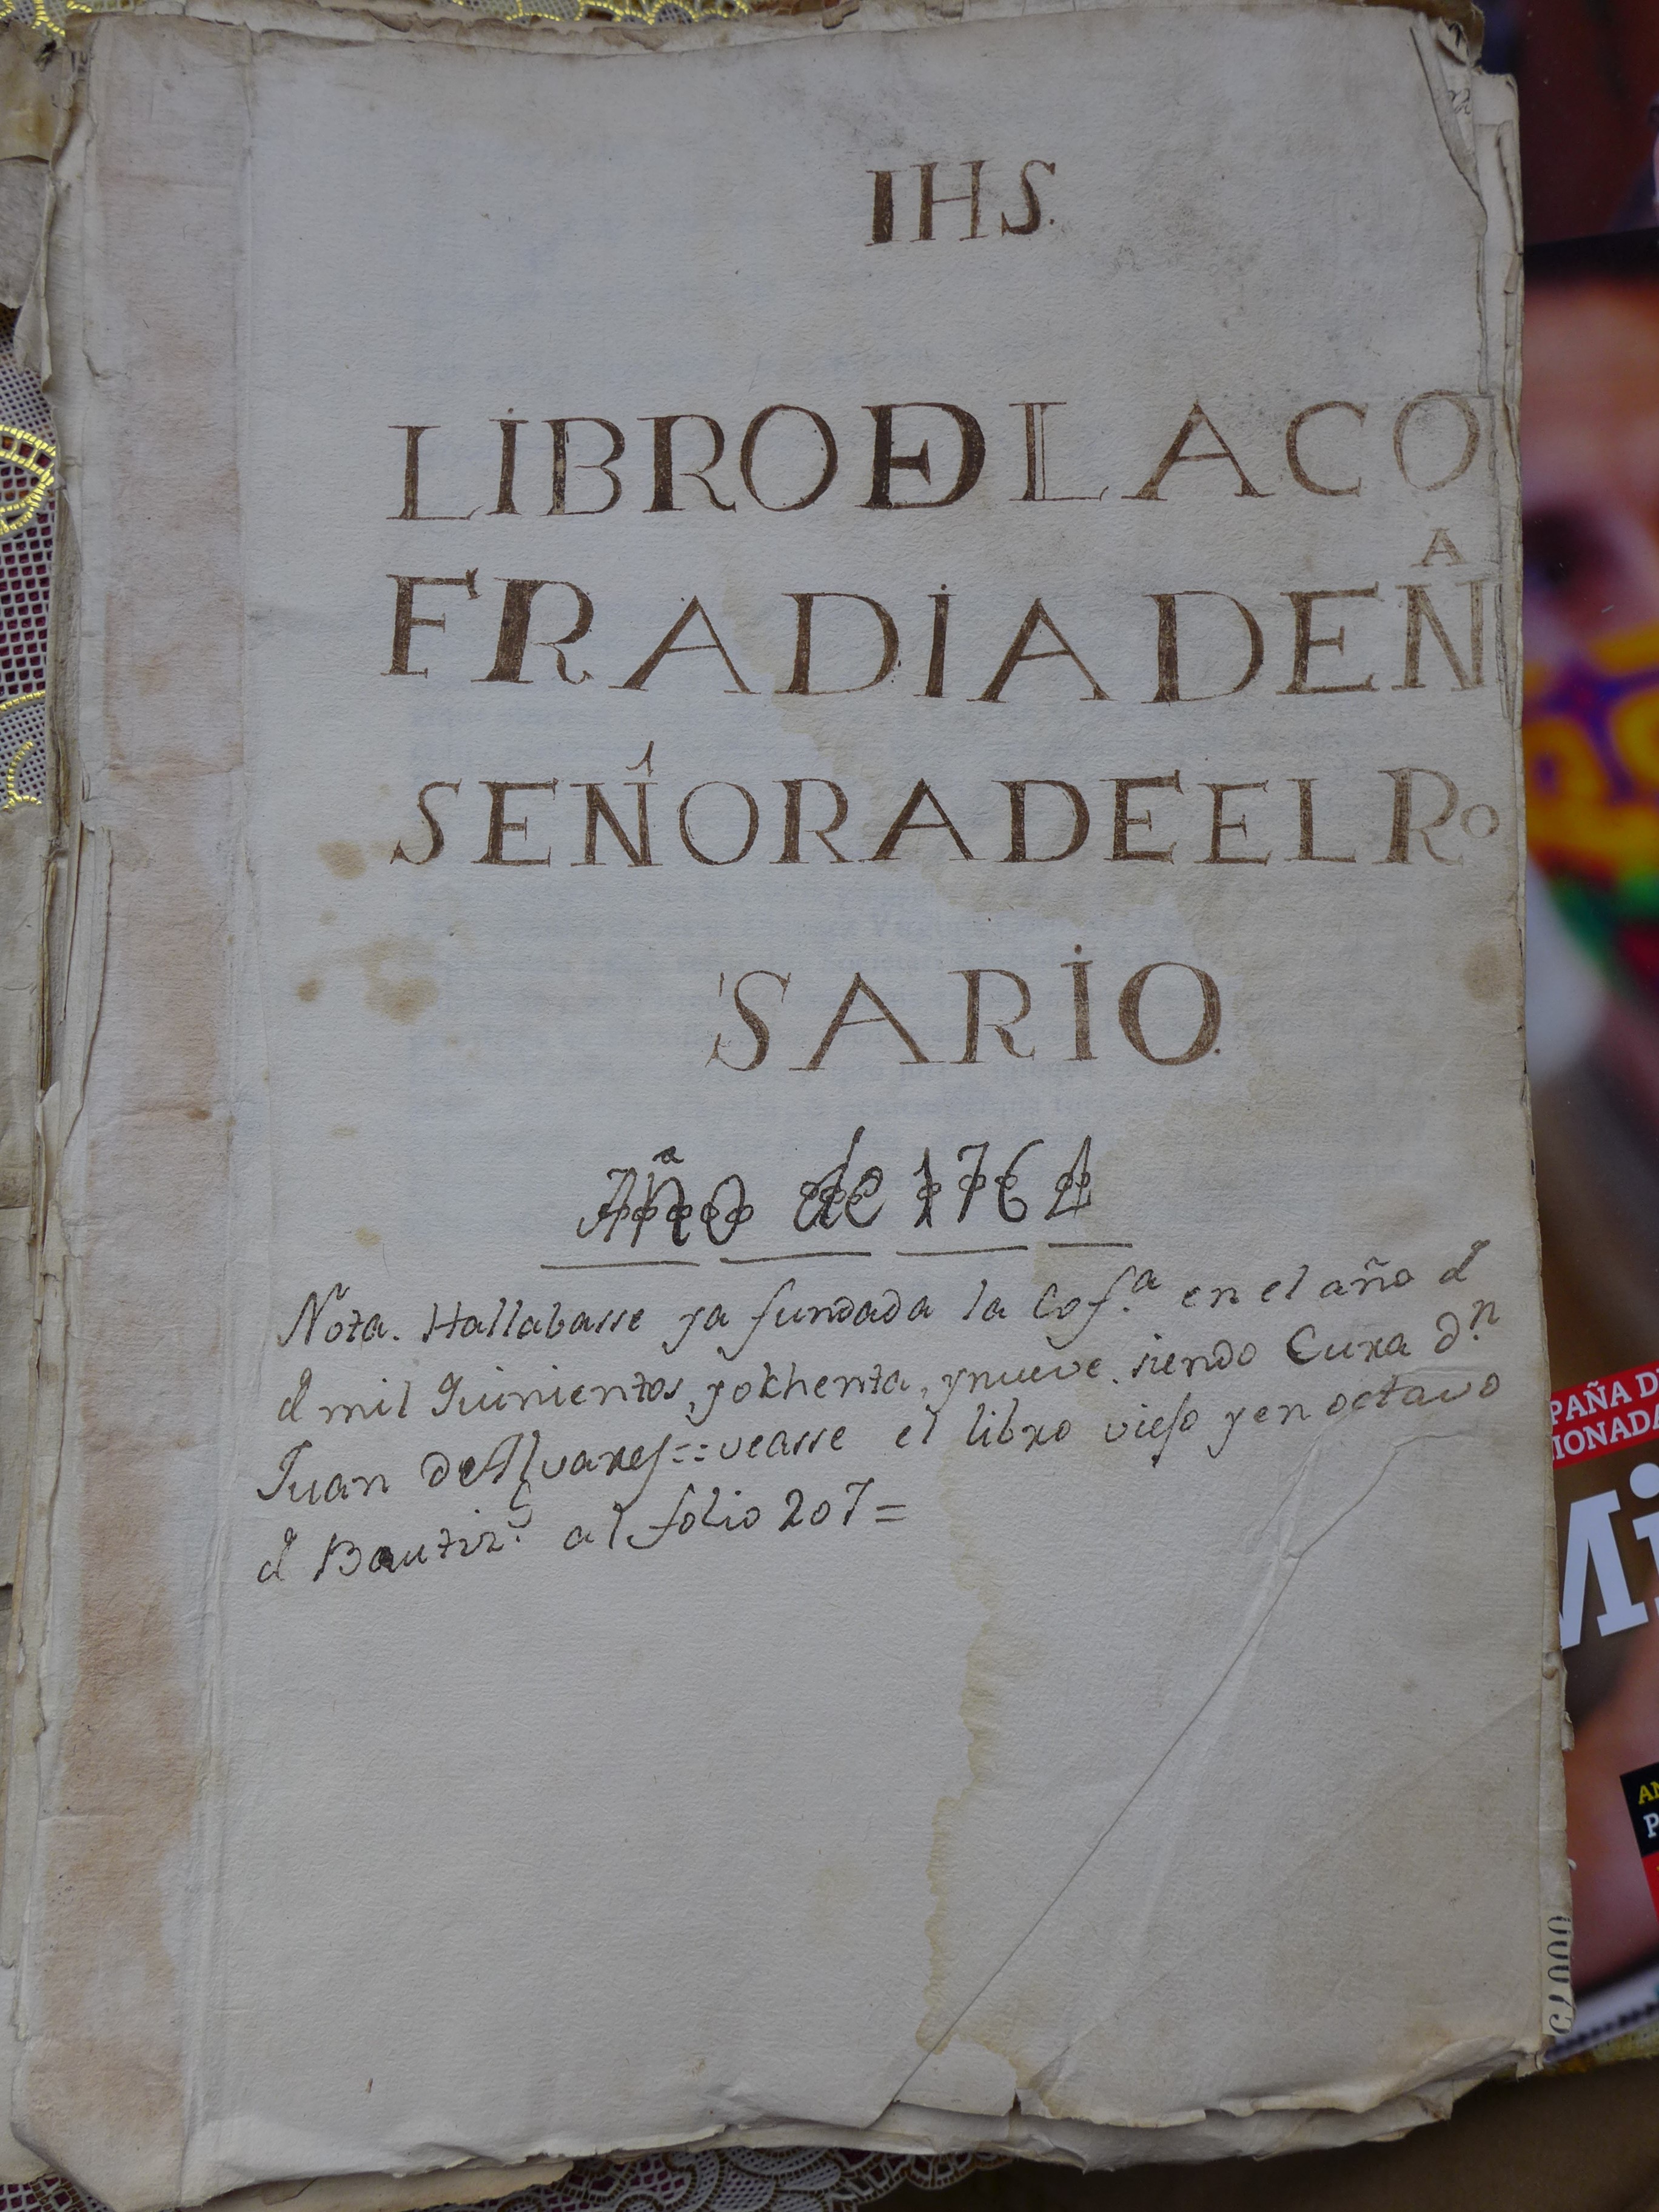 IHS.
LIBRO DE LA CO
FRADIA DE Nᴬ
SEÑORA DE EL Ro
SARIO.
Año de 1764
Nota. Hallabasse ya fundada la Cof.ª en el año d
d mil Quinientos, y okhenta, y nueve. siendo Cura D.ⁿ
Juan de Alvares=:veasse el libro viejo y en octavo
d Bautiz.ˢ al folio 207=
PAÑA D
IONADA
Mi